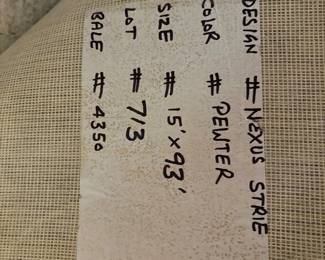 DESIGN # NEXUS STRIE
COLOR # PEWTER
SIZE # 15' x 93'
LOT # 713
BALE # 4350